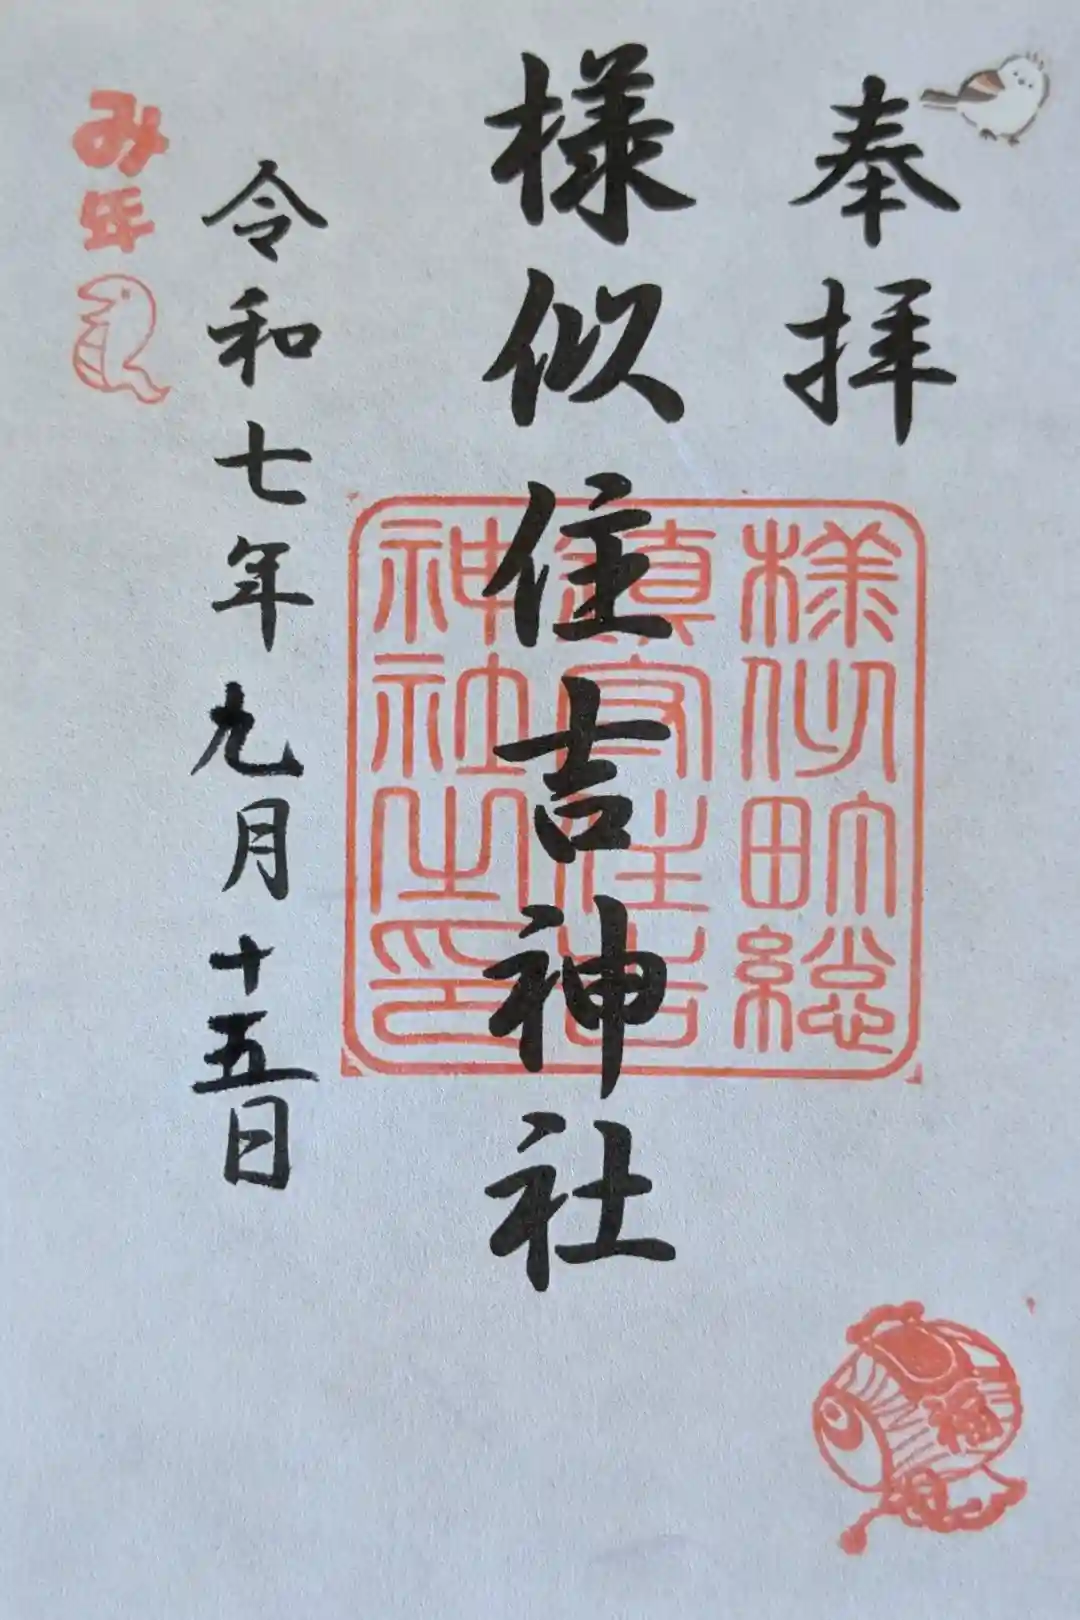 奉拝
様似住吉神社
様似町総
鎮守住吉
神社之印
令和七年九月十五日
み年
福